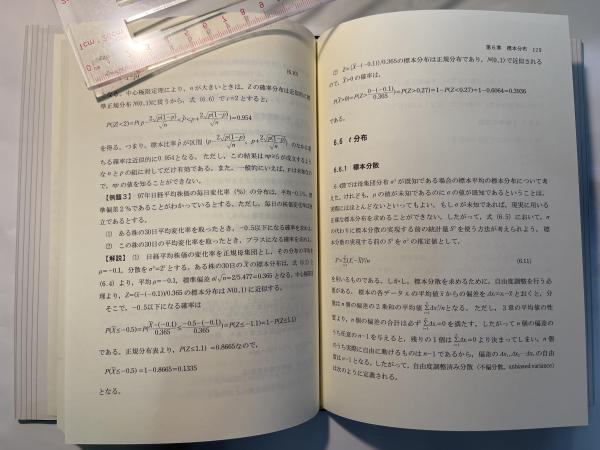 1cm=.50cm
(6.10)
となる。中心極限定理により，nが大きいときは，Zの確率分布は近似的に標
準正規分布N(0,1)に従うから，式 (6.6) で z=2とすると，
P(|Z|<2)=P(p-2√p(1-p)/√n<p̂<p+2√p(1-p)/√n)=0.954
を得る。つまり，標本比率p̂が区間 (p-2√p(1-p)/√n, p+2√p(1-p)/√n) のなかに落
ちる確率は近似的に0.954となる。ただし，この結果はnp≥5が成立するよう
なnとpの組に対してだけ有効である。また，一般的にいえば，pは未知なの
で，npの値を知ることができない。
【例題3】 97年日経平均株価の毎日変化率（%）の分布は，平均-0.1%，標
準偏差2%であることがわかっているとする。ただし，毎日の株価変化率は独
立であるとする。
(1) ある株の30日平均変化率を取ったとき，-0.5以下になる確率を求めよ。
(2) この株の30日の平均変化率を取ったとき，プラスになる確率を求めよ。
【解説】 (1) 日経平均株価の変化率を正規母集団とし，その分布の平均を
μ=-0.1，分散をσ²=2²とする。ある株の30日のX̄の標本分布は，式 (6.2) と
(6.4) より，平均μ=-0.1，標準偏差σ/√n=2/5.477=0.365となる。中心極限定
理より，Z=(x̄-(-0.1))/0.365 の標本分布はN(0,1)に近似する。
そこで，-0.5以下になる確率は
P(X̄≤-0.5)=P(X̄-(-0.1)/0.365≤-0.5-(-0.1)/0.365)=P(Z≤-1.1)=1-P(Z≤1.1)
である。正規分布表より，P(Z≤1.1) =0.8665なので，
P(X̄≤-0.5)=1-0.8665=0.1335
となる。
第6章 標本分布 129
(2) Z=(X̄-(-0.1))/0.365の標本分布は正規分布であり，N(0,1)で近似される
ので，X̄>0の確率は，
P(X̄>0)=P(Z>0-(-0.1)/0.365)=P(Z>0.27)=1-P(Z<0.27)=1-0.6064=0.3936
である。
6.6 t分布
6.6.1 標本分散
6.4節では母集団分布σ²が既知である場合の標本平均の標本分布について考
えた。けれども，μの値が未知であるのにσの値が既知であるということは，
実際にはほとんどないといってもよい。もしσが未知であれば，現実に用いる
正確な標本分布を求めることができない。したがって，式 (6.5) において，σ
の代わりに標本分散の実現する前の統計量S²を使う方法が考えられよう。標
本分散の実現する前のS²をσ²の推定量として，
(6.11)
を用いるものである。しかし，標本分散を求めるために，自由度調整を行う必
要がある。標本の各データxᵢの平均値x̄からの偏差をΔxᵢ=xᵢ-x̄とおくと，分
散はn個の偏差の2乗和の平均値ΣΔxᵢ²/nとなる。ただし，3章の平均値の性
質より，n個の偏差の合計は必ずΣΔxᵢ=0を満たす。したがってn個の偏差の
うち任意のn-1を与えると，残りの1個はΣΔxᵢ=0より決まってしまい，n個
のうち実際に自由に動けるものはn-1であるから，偏差のΔx₁,Δx₂…Δxₙの自由
度はn-1となる。したがって，自由度調整済み分散（不偏分散，unbiased variance）
は次のように定義される。